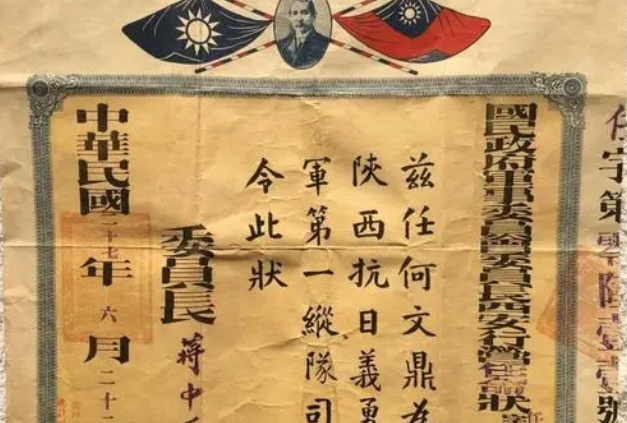 任字第零陸壹壹號
國民政府軍事委員會委員長西安行營任命狀
茲任何文鼎為
陝西抗日義勇
軍第一縱隊司
令此狀
委員長
蔣中
中華民國二十七年六月二十